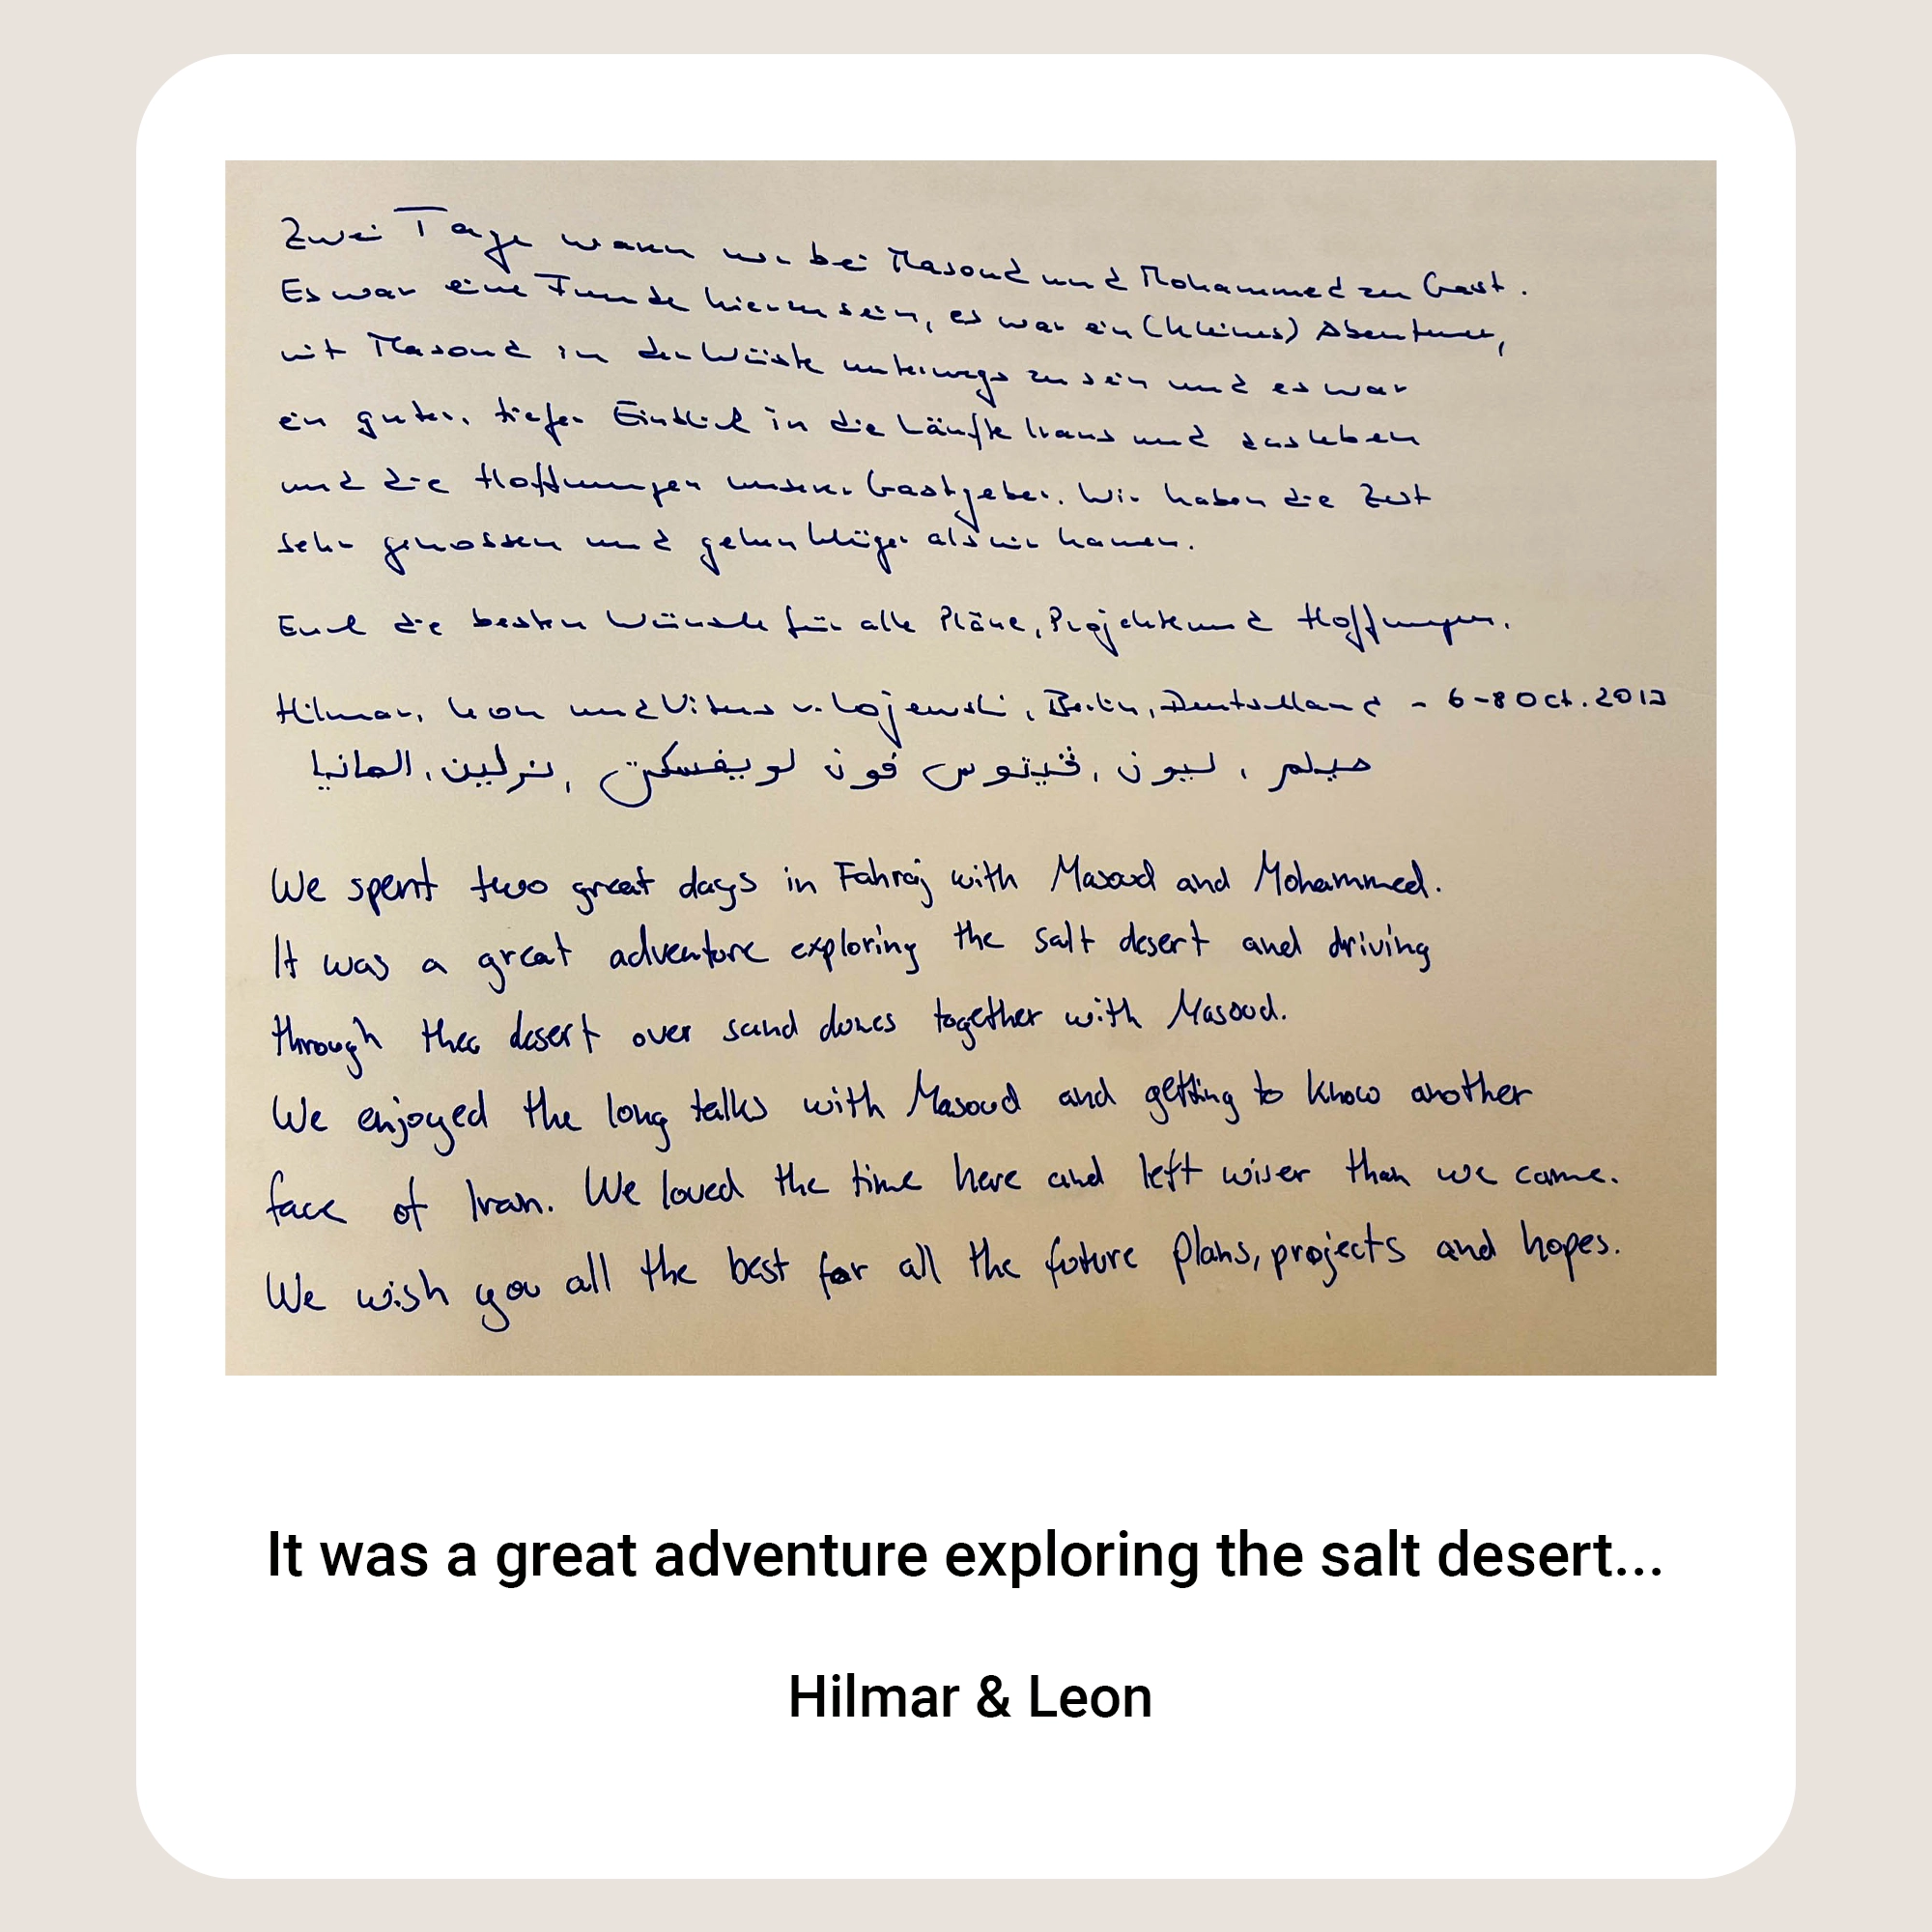 Zwei Tage waren wir bei Masoud und Mohammed zu Gast.
Es war eine Freude hier zu sein, es war ein (kleines) Abenteuer,
mit Masoud in der Wüste unterwegs zu sein und es war
ein guter, tiefer Einblick in die Läufte Irans und das Leben
und die Hoffnungen unserer Gastgeber. Wir haben die Zeit
sehr genossen und gehen klüger als wir kamen.
Euch die besten Wünsche für alle Pläne, Projekte und Hoffnungen.
Hilmar, Leon und Vitus v. Lojewski, Berlin, Deutschland - 6-8 Oct.
ليون , فيتوس فون
We spent two great days in Fahraj with Masoud and Mohammed.
It was a great adventure exploring the salt desert and driving
through the desert over sand dunes together with Masoud.
We enjoyed the long talks with Masoud and getting to know another
face of Iran. We loved the time here and left wiser than we came.
We wish you all the best for all the future plans, projects and hopes.
It was a great adventure exploring the salt desert...
Hilmar & Leon